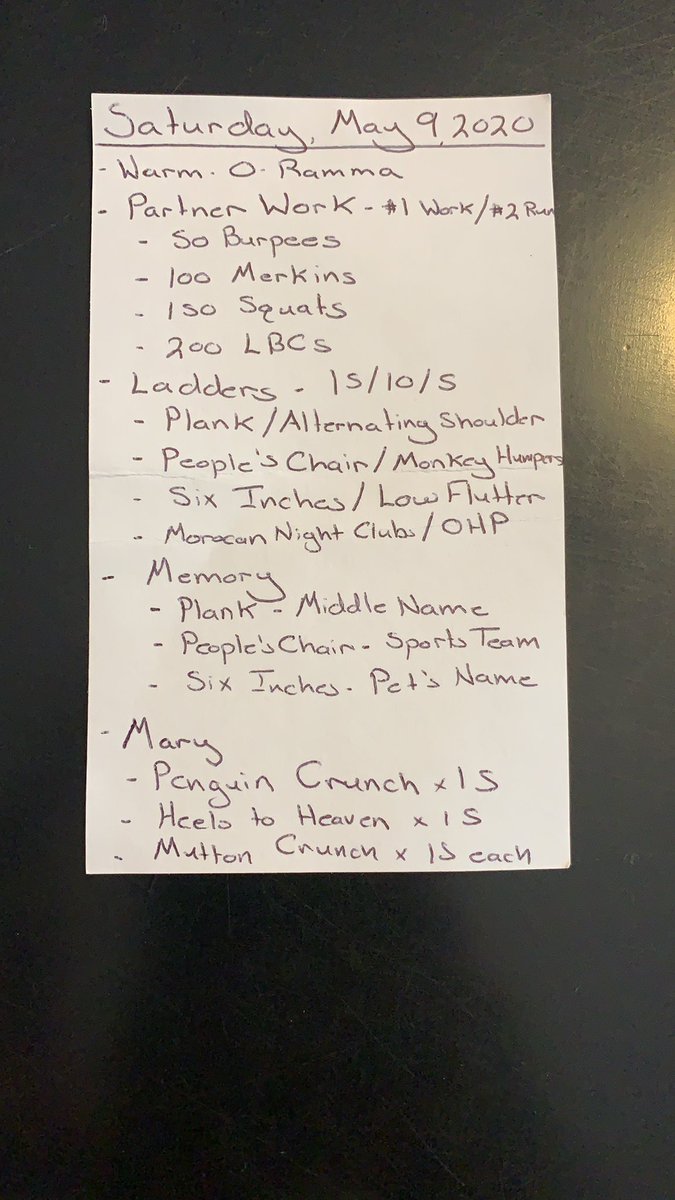 Saturday, May 9, 2020
- Warm-O-Ramma
- Partner Work - #1 Work/#2 Run
- 50 Burpees
- 100 Merkins
- 150 Squats
- 200 LBCs
- Ladders - 15/10/5
- Plank/Alternating Shoulder
- People's Chair/Monkey Humpers
- Six Inches/Low Flutter
- Morocan Night Clubs/OHP
- Memory
- Plank - Middle Name
- People's Chair - Sports Team
- Six Inches - Pet's Name
- Mary
- Penguin Crunch x 15
- Heels to Heaven x 15
- Mutton Crunch x 15 each